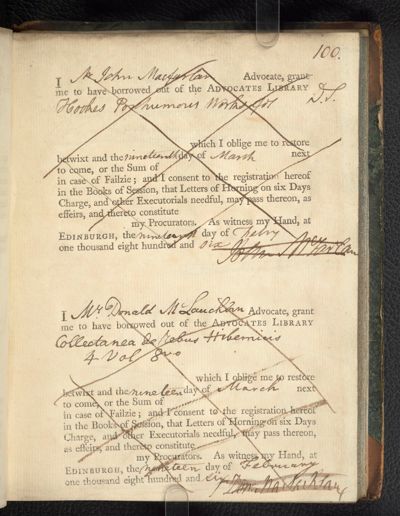 100.
I Mr John Macfarlan Advocate, grant
me to have borrowed out of the ADVOCATES LIBRARY
Hookes Posthumous Works fol D.S.
which I oblige me to restore
betwixt and the nineteenth day of March next
to come, or the Sum of
in case of Failzie; and I consent to the registration hereof
in the Books of Session, that Letters of Horning on six Days
Charge, and other Executorials needful, may pass thereon, as
effeirs, and thereto constitute
my Procurators. As witness my Hand, at
EDINBURGH, the nineteenth day of Febry
one thousand eight hundred and six
John McFarlan
I Mr Donald McLauchlan Advocate, grant
me to have borrowed out of the ADVOCATES LIBRARY
Collectanea de Rebus Hibernicis
4 Vol 8vo
which I oblige me to restore
betwixt and the nineteen day of March next
to come, or the Sum of
in case of Failzie; and I consent to the registration hereof
in the Books of Session, that Letters of Horning on six Days
Charge, and other Executorials needful, may pass thereon,
as effeirs, and thereto constitute
my Procurators. As witness my Hand, at
EDINBURGH, the nineteen day of February
one thousand eight hundred and six